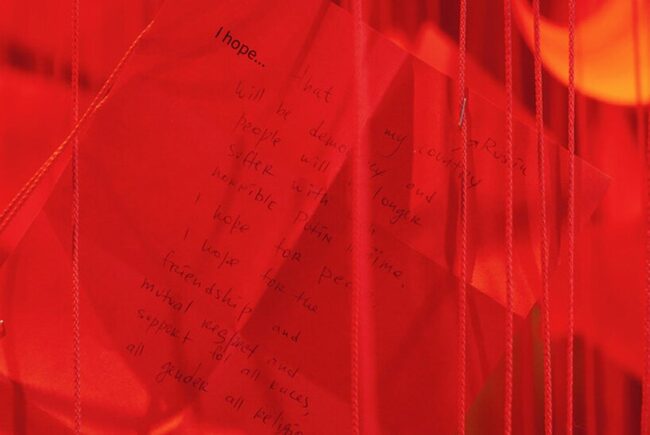 I hope...
that my country
will be democracy and
people will no longer
suffer with
horrible Putin regime.
I hope for peace,
I hope for the
friendship and
mutual respect and
support for all races,
all gender all religio